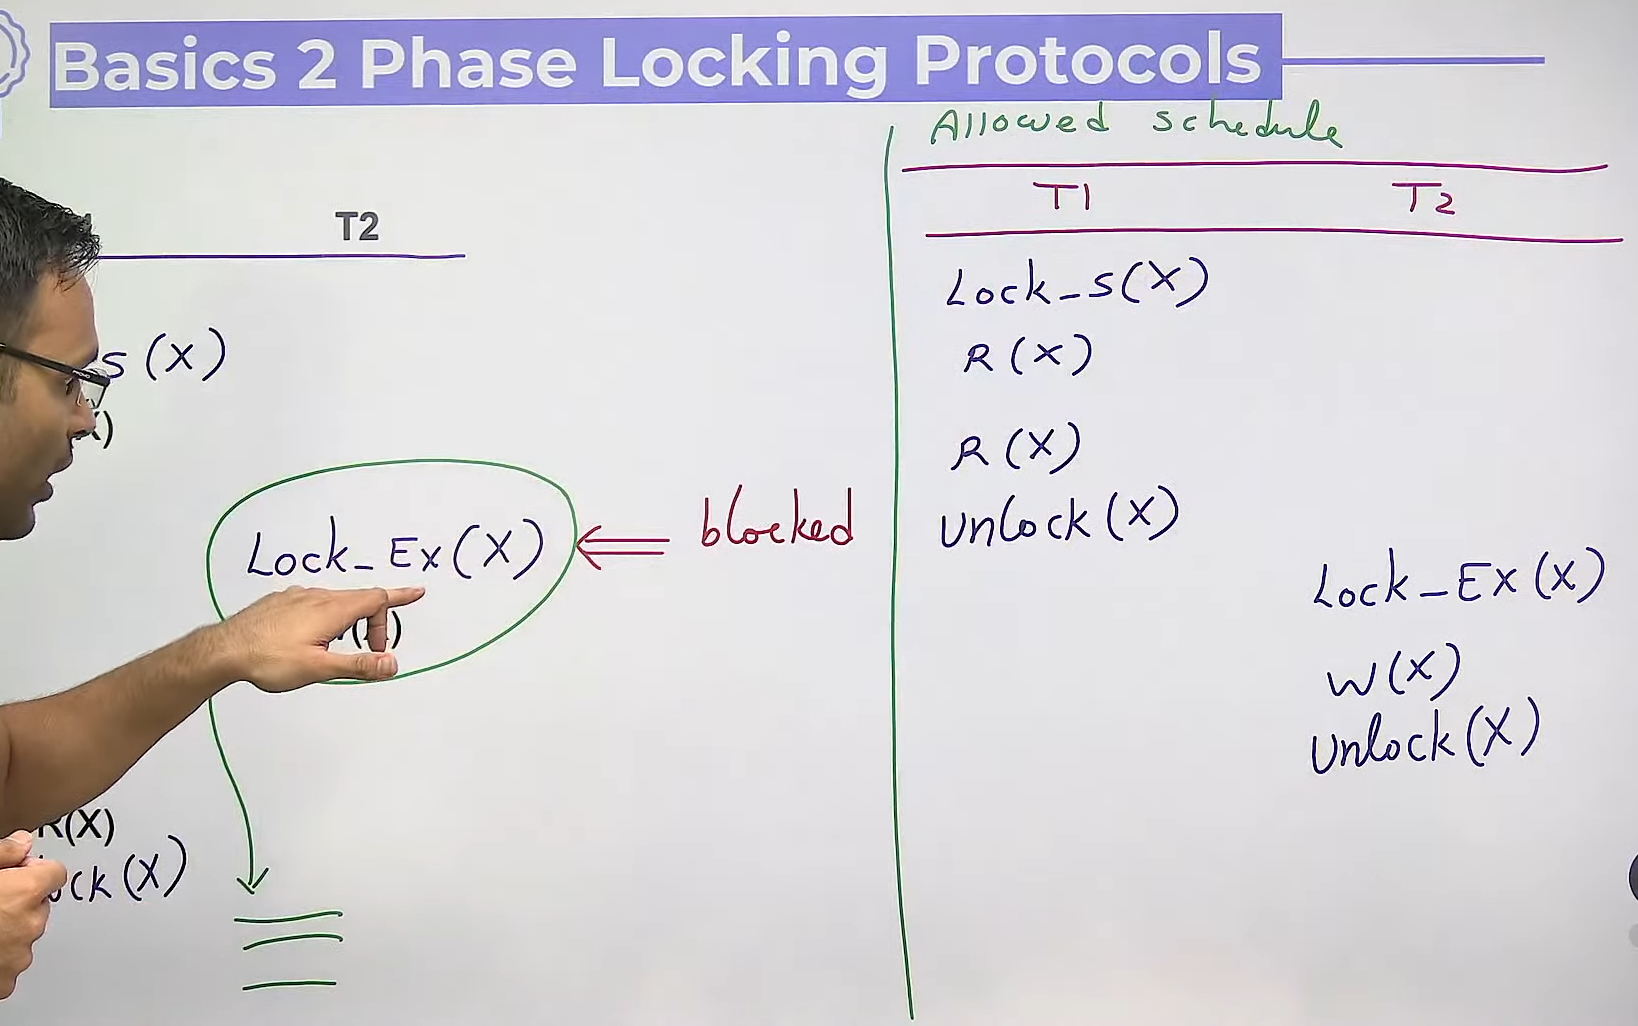 Basics 2 Phase Locking Protocols
T2
s (X)
X)
Lock_Ex(X)
blocked
R(X)
ock(X)
Allowed schedule
T1 T2
Lock_s(X)
R(X)
R(X)
Unlock(X)
Lock_Ex(X)
W(X)
Unlock(X)